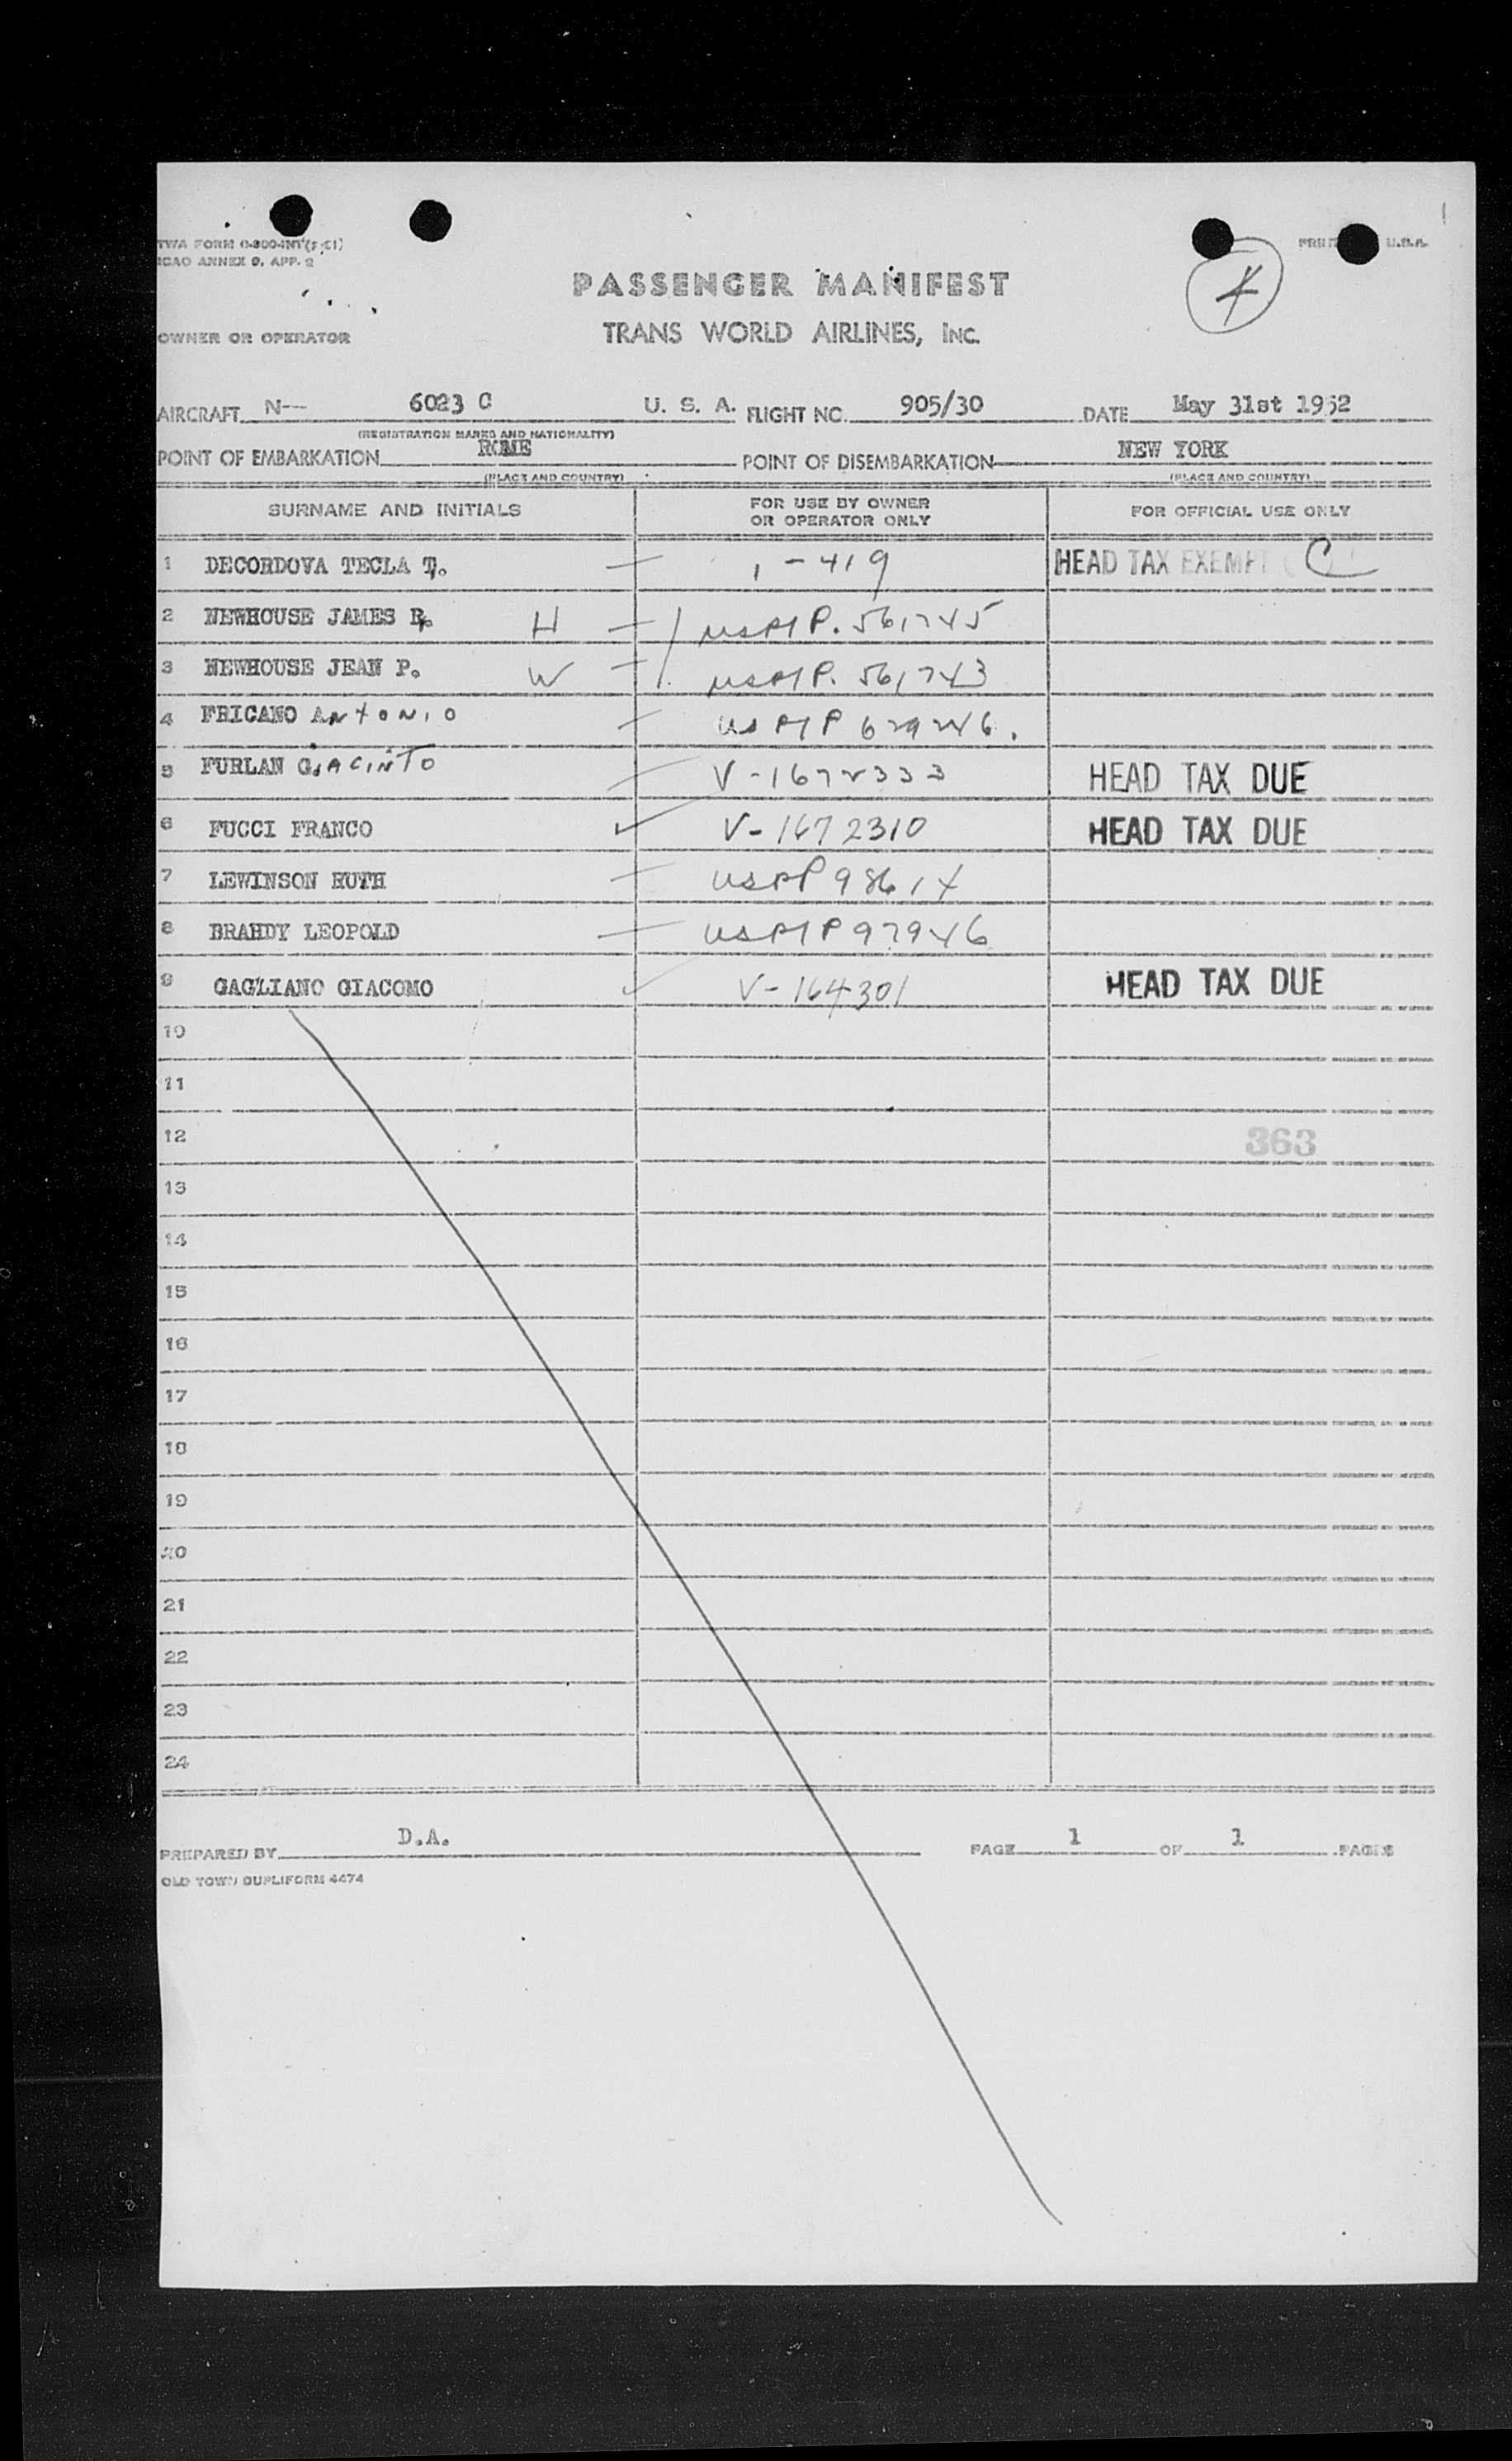 TWA FORM
ICAO ANNEX 9, APP. 2
U.S.A.
PASSENGER MANIFEST
TRANS WORLD AIRLINES, INC.
OWNER OR OPERATOR
AIRCRAFT N-- 6023 C U. S. A. FLIGHT NO. 905/30 DATE May 31st 1952
(REGISTRATION MARKS AND NATIONALITY)
POINT OF EMBARKATION ROME POINT OF DISEMBARKATION NEW YORK
(PLACE AND COUNTRY) (PLACE AND COUNTRY)
SURNAME AND INITIALS FOR USE BY OWNER OR OPERATOR ONLY FOR OFFICIAL USE ONLY
1 DECORDOVA TECLA T. 1-419 HEAD TAX EXEMPT C
2 NEWHOUSE JAMES R. H 561745
3 NEWHOUSE JEAN P. W 561743
4 FRICANO ANTONIO
5 FURLAN GIACINTO V-1672333 HEAD TAX DUE
6 FUCCI FRANCO V-1672310 HEAD TAX DUE
7 LEWINSON RUTH USPP 98614
8 BRAHDY LEOPOLD 97946
9 GAGLIANO GIACOMO V-164301 HEAD TAX DUE
10
11
12 363
13
14
15
16
17
18
19
20
21
22
23
24
PREPARED BY D.A. PAGE 1 OF 1 PAGES
OLD TOWN DUPLIFORM 4474